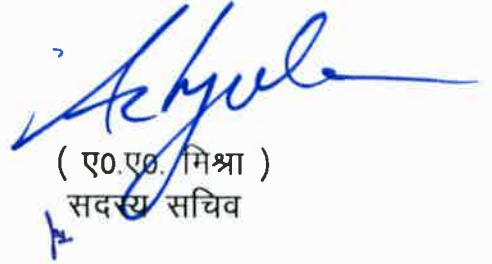 ( ए0.ए0. मिश्रा )
सदस्य सचिव